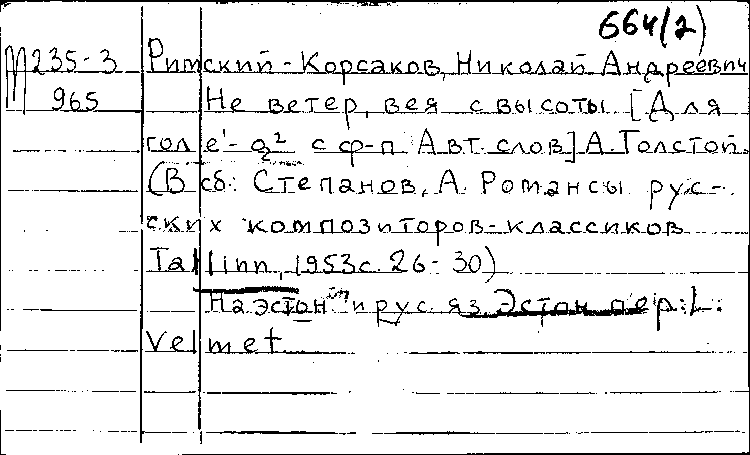 664(2)
М235-3 Римский-Корсаков, Николай Андреевич
965 Не ветер, вея с высоты. [Для
гол e'- g² с ф-п. Авт. слов] А. Толстой.
(В сб: Степанов, А. Романсы рус-
ских композиторов-классиков
Tallinn, 1953 с. 26-30)
На эстон и рус. яз. Эстон. пер.: L.
Velmet